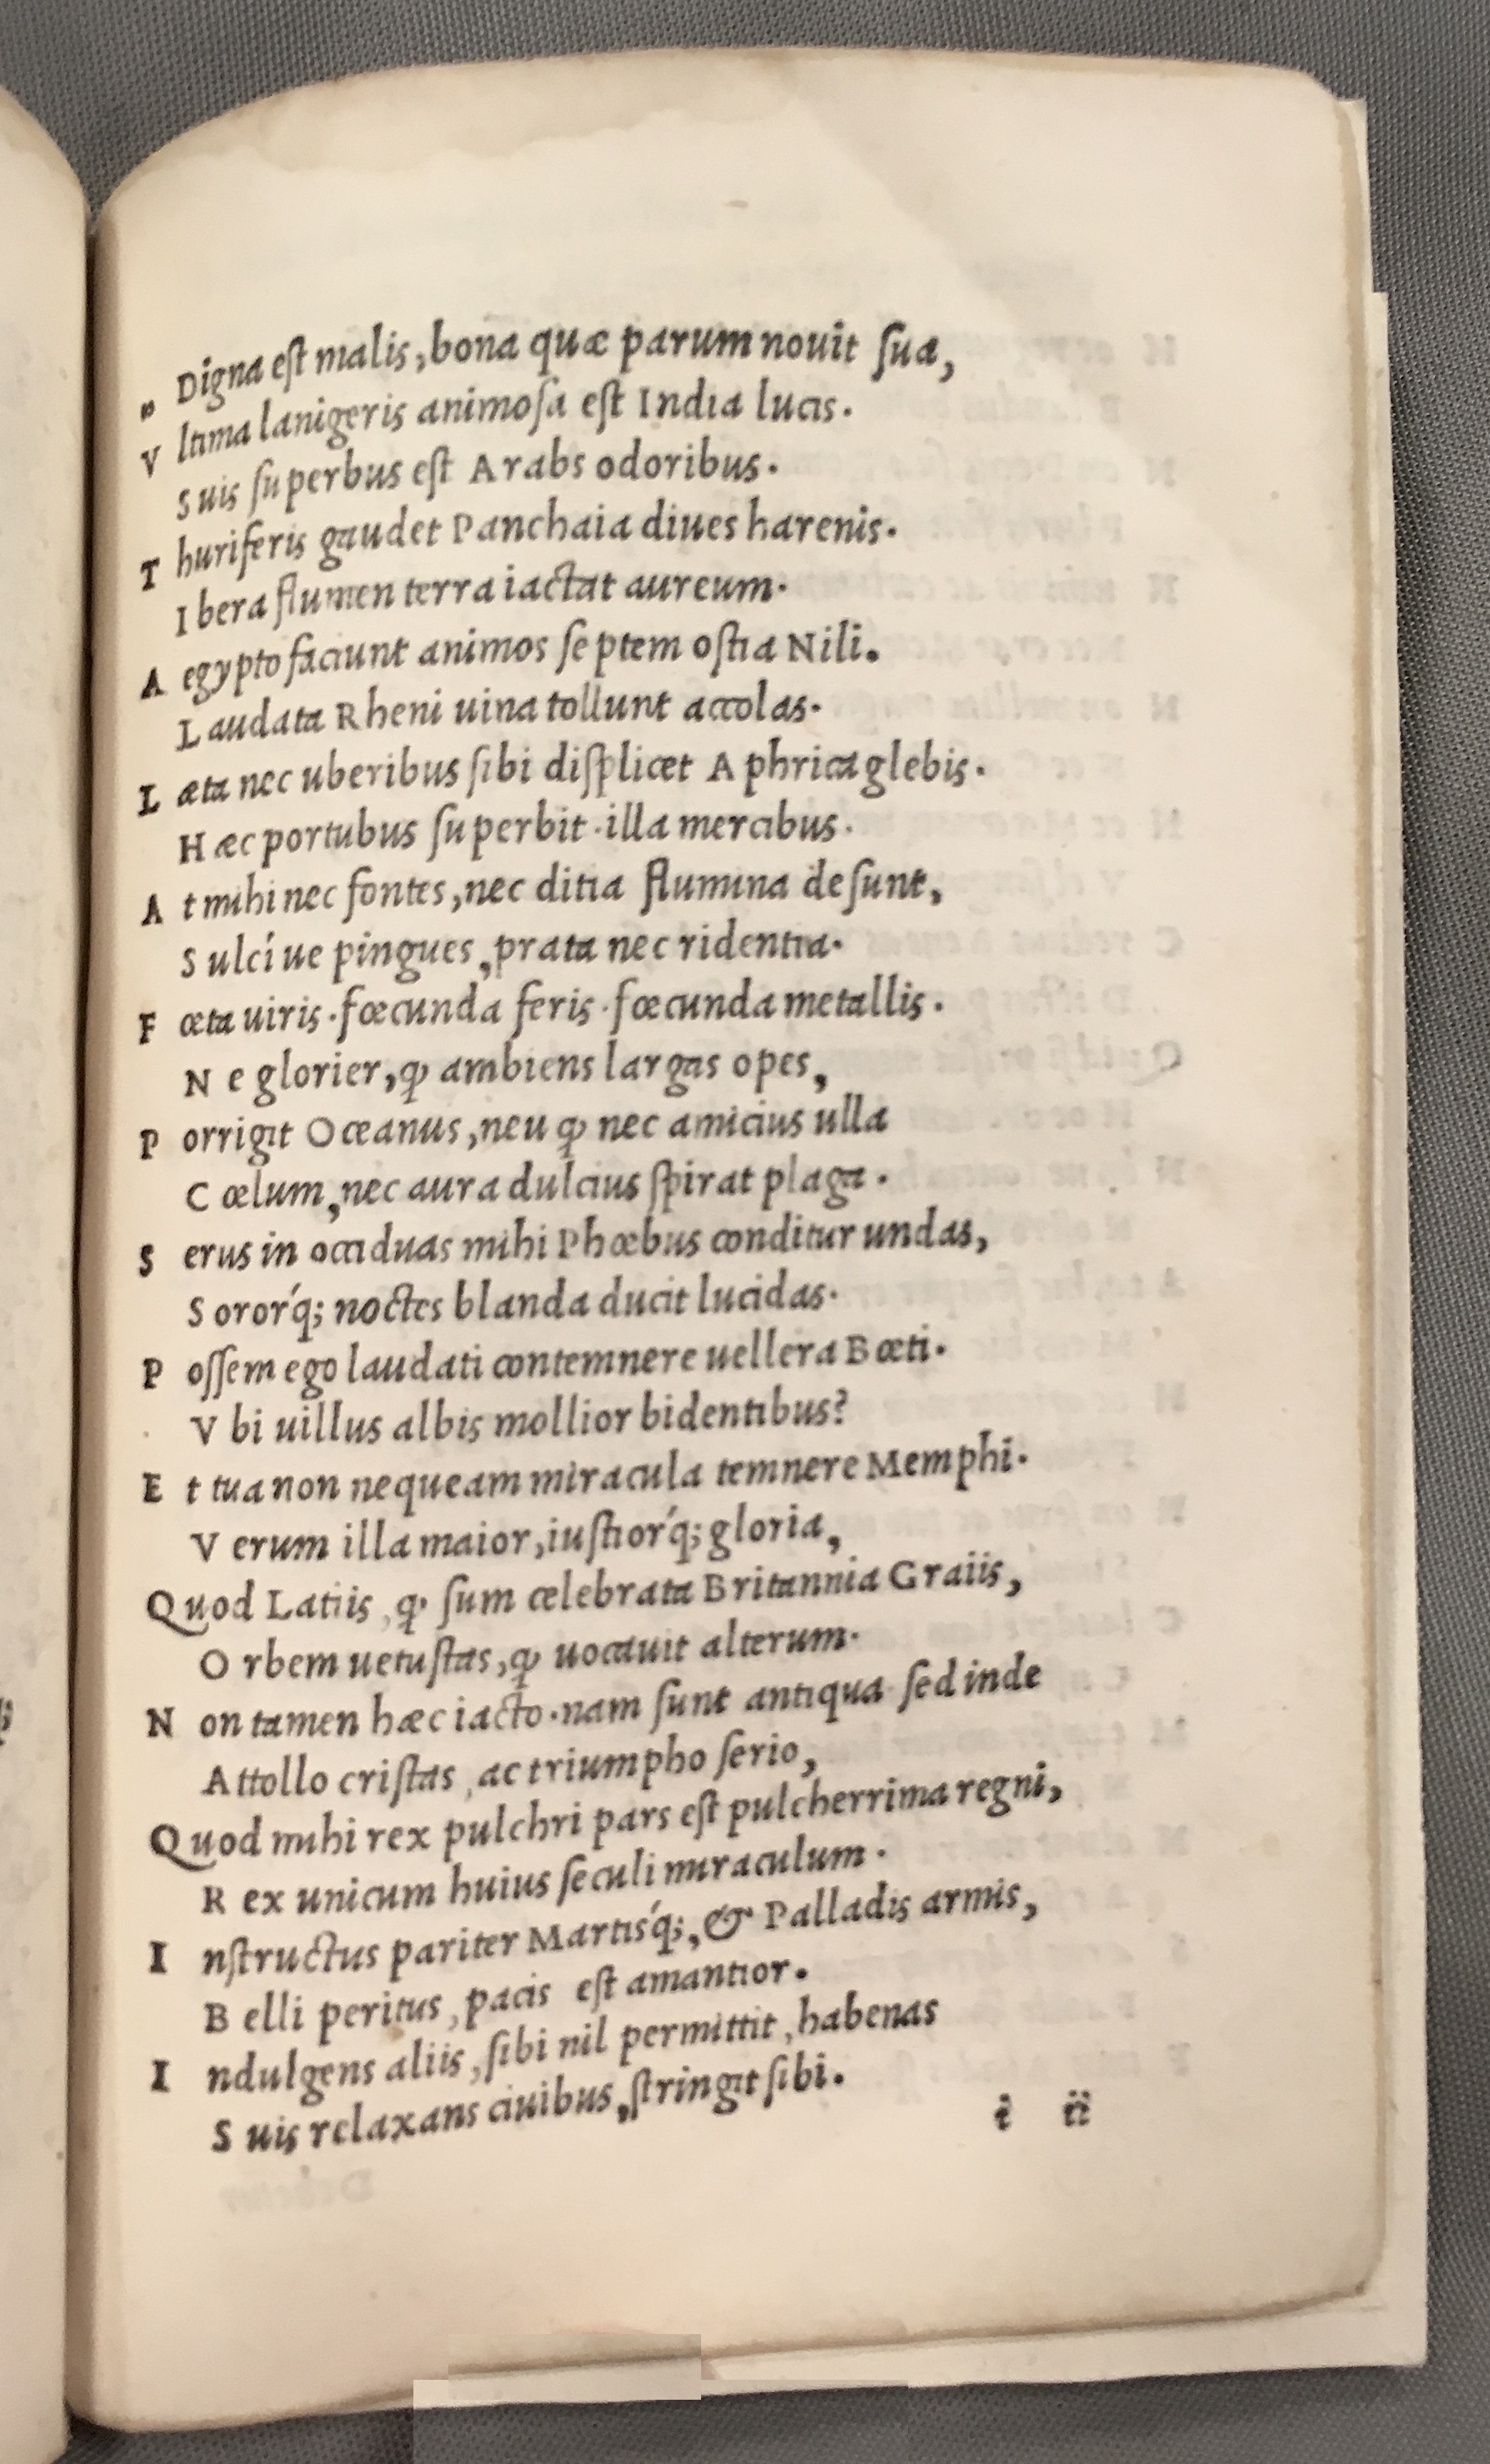 „ Digna eſt malis, bona quæ parum nouit ſua,
V ltima lanigeris animoſa eſt India lucis.
S uis ſuperbus eſt Arabs odoribus.
T huriferis gaudet Panchaia diues harenis.
I bera flumen terra iactat aureum.
A egypto faciunt animos ſeptem oſtia Nili.
L audata Rheni uina tollunt accolas.
L æta nec uberibus ſibi diſplicet Aphrica glebis.
H æc portubus ſuperbit. illa mercibus.
A t mihi nec fontes, nec ditia flumina deſunt,
S ulcíue pingues, prata nec ridentia.
F œta uiris. fœcunda feris. fœcunda metallis.
N e glorier, ꝙ ambiens largas opes,
P orrigit Oceanus, neu ꝙ nec amicius ulla
C œlum, nec aura dulcius ſpirat plaga.
S erus in occiduas mihi Phœbus conditur undas,
S orórq; noctes blanda ducit lucidas.
P oſſem ego laudati contemnere uellera Bœti.
V bi uillus albis mollior bidentibus?
E t tua non nequeam miracula temnere Memphi.
V erum illa maior, iuſtiórq; gloria,
Quod Latiis, ꝙ ſum celebrata Britannia Graiis,
O rbem uetuſtas, ꝙ uocauit alterum.
N on tamen hæc iacto. nam ſunt antiqua ſed inde
A ttollo criſtas, ac triumpho ſerio,
Quod mihi rex pulchri pars eſt pulcherrima regni,
R ex unicum huius ſeculi miraculum.
I nſtructus pariter Martiśq;, & Palladis armis,
B elli peritus, pacis eſt amantior.
I ndulgens aliis, ſibi nil permittit, habenas
S uis relaxans ciuibus, ſtringit ſibi.
i ii